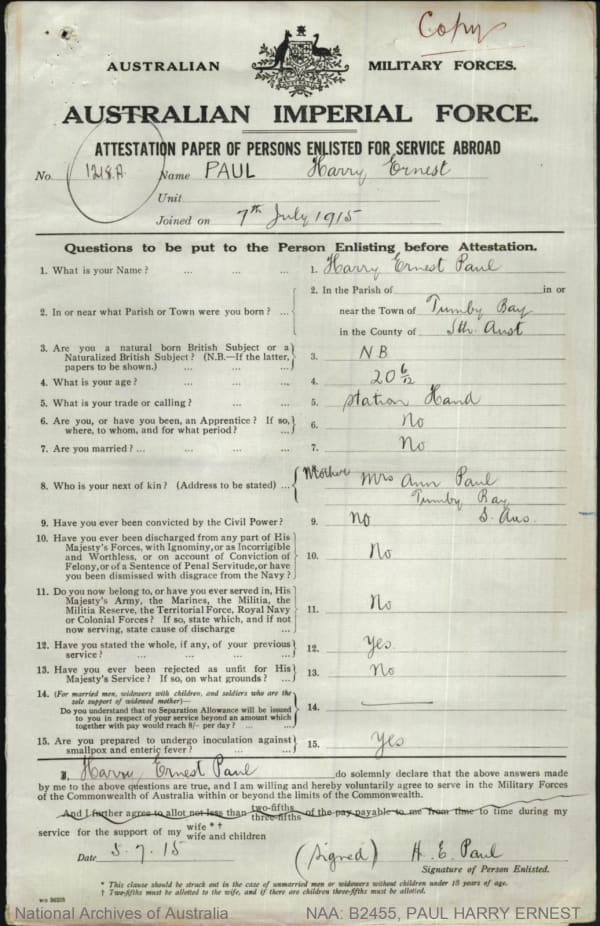 Copy
AUSTRALIAN MILITARY FORCES.
AUSTRALIAN IMPERIAL FORCE.
ATTESTATION PAPER OF PERSONS ENLISTED FOR SERVICE ABROAD
No. 1218A Name PAUL Harry Ernest
Unit
Joined on 7th July 1915
Questions to be put to the Person Enlisting before Attestation.
1. What is your Name? ... ... ... 1. Harry Ernest Paul
2. In the Parish of in or
2. In or near what Parish or Town were you born? ... near the Town of Tumby Bay
in the County of Sth Aust
3. Are you a natural born British Subject or a
Naturalized British Subject? (N.B.—If the latter, 3. N B
papers to be shown.) ... ... ...
4. What is your age? ... ... ... 4. 20 6/12
5. What is your trade or calling? ... ... 5. Station Hand
6. Are you, or have you been, an Apprentice? If so, 6. No
where, to whom, and for what period? ...
7. Are you married? ... ... ... ... 7. No
Mother Mrs Ann Paul
8. Who is your next of kin? (Address to be stated) ... Tumby Bay
9. Have you ever been convicted by the Civil Power? 9. No S. Aus.
10. Have you ever been discharged from any part of His
Majesty's Forces, with Ignominy, or as Incorrigible
and Worthless, or on account of Conviction of 10. No
Felony, or of a Sentence of Penal Servitude, or have
you been dismissed with disgrace from the Navy?
11. Do you now belong to, or have you ever served in, His
Majesty's Army, the Marines, the Militia, the
Militia Reserve, the Territorial Force, Royal Navy 11. No
or Colonial Forces? If so, state which, and if not
now serving, state cause of discharge ...
12. Have you stated the whole, if any, of your previous 12. Yes
service? ... ... ... ...
13. Have you ever been rejected as unfit for His 13. No
Majesty's Service? If so, on what grounds? ...
14. (For married men, widowers with children, and soldiers who are the
sole support of widowed mother)—
Do you understand that no Separation Allowance will be issued 14. —
to you in respect of your service beyond an amount which
together with pay would reach 8/- per day? ... ...
15. Are you prepared to undergo inoculation against 15. Yes
smallpox and enteric fever? ... ...
I, Harry Ernest Paul do solemnly declare that the above answers made
by me to the above questions are true, and I am willing and hereby voluntarily agree to serve in the Military Forces
of the Commonwealth of Australia within or beyond the limits of the Commonwealth.
And I further agree to allot not less than two-fifths three-fifths of the pay payable to me from time to time during my
service for the support of my wife * † wife and children
Date 5.7.15 (Signed) H. E. Paul
Signature of Person Enlisted.
* This clause should be struck out in the case of unmarried men or widowers without children under 18 years of age.
† Two-fifths must be allotted to the wife, and if there are children three-fifths must be allotted.
National Archives of Australia NAA: B2455, PAUL HARRY ERNEST